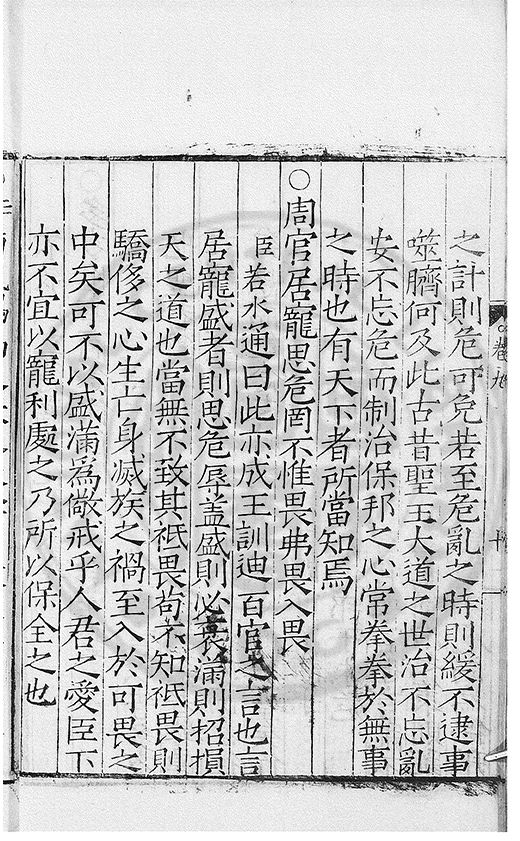 之計則危可免若至危亂之時則緩不逮事
噬臍何及此古昔聖王大道之世治不忘亂
安不忘危而制治保邦之心常拳拳於無事
之時也有天下者所當知焉
○周官居寵思危罔不惟畏弗畏入畏
臣若水通曰此亦成王訓迪百官之言也言
居寵盛者則思危辱蓋盛則必衰滿則招損
天之道也當無不致其祇畏苟不知祇畏則
驕侈之心生亡身滅族之禍至入於可畏之
中矣可不以盛滿為儆戒乎人君之愛臣下
亦不宜以寵利處之乃所以保全之也